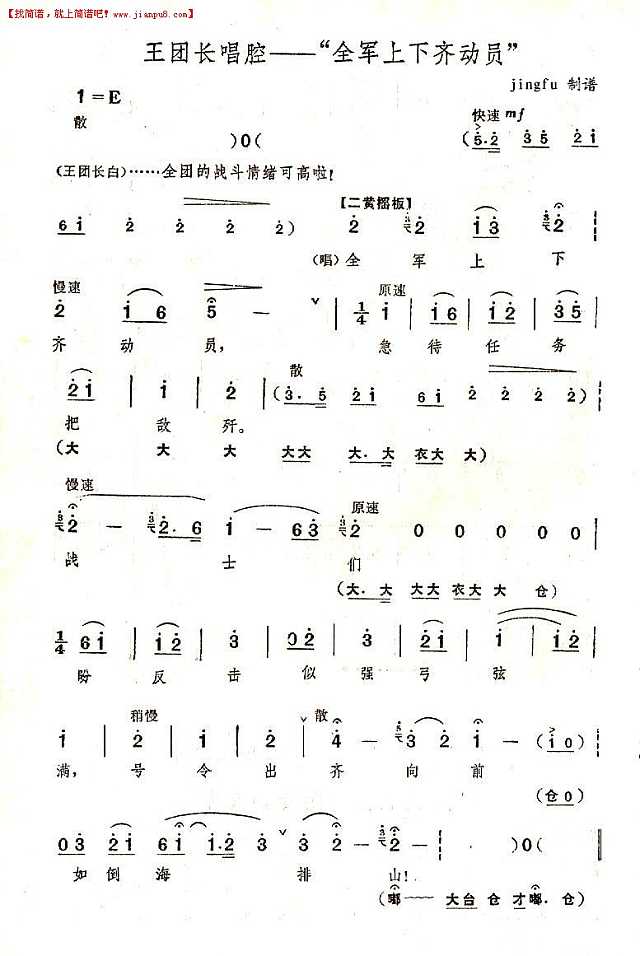 【找简谱，就上简谱吧! www.jianpu8.com】
王团长唱腔——“全军上下齐动员”
jingfu 制谱
1=E
快速 mf
散
)0( (5·2 35 21
(王团长白)……全团的战斗情绪可高啦!
【二黄摇板】
61 2 2 2) 2 2 13 2
(唱)全 军 上 下
慢速 原速
2 1 6 5 — ∨ 1/4 1 | 16 | 12 | 35 |
齐 动 员， 急 待 任 务
散
21 | 1 | 2 | (3·5 21 612 2 2)
把 敌 歼。
(大 大 大 大大 大·大 衣大 大)
慢速 原速
2 — 2·6 1 — 63 2 0 0 0 0 0
战 士 们
(大·大 大大 衣大大 仓)
1/4 61 | 12 | 3 | 02 | 3 | 21 | 1
盼 反 击 似 强 弓 弦
稍慢 散
1 | 2 | 1 | 2 ∨ 4 — 3 2 4 — (10)
满， 号 令 出 齐 向 前
(仓0)
03 21 61 1·2 3 ∨ 3 — 2 — )0(
如 倒 海 排 山!
(嘟—— 大台 仓 才嘟·仓)